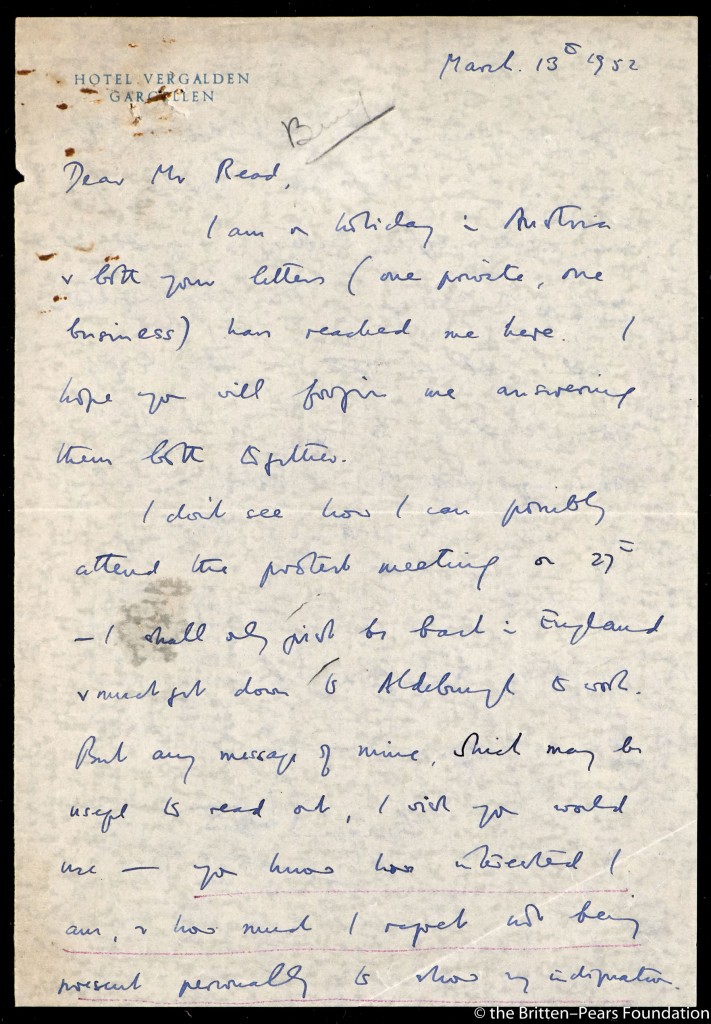 HOTEL VERGALDEN
GARGELLEN
March. 13th 1952
Dear Mr Read,
I am on holiday in Austria
& both your letters (one private, one
business) have reached me here. I
hope you will forgive me answering
them both together.
I don't see how I can possibly
attend the protest meeting on 27th
— I shall only just be back in England
& must get down to Aldeburgh to work.
But any message of mine, which may be
useful to read out, I wish you would
use — you know how interested I
am, & how much I regret not being
present personally to show my indignation.
© the Britten–Pears Foundation